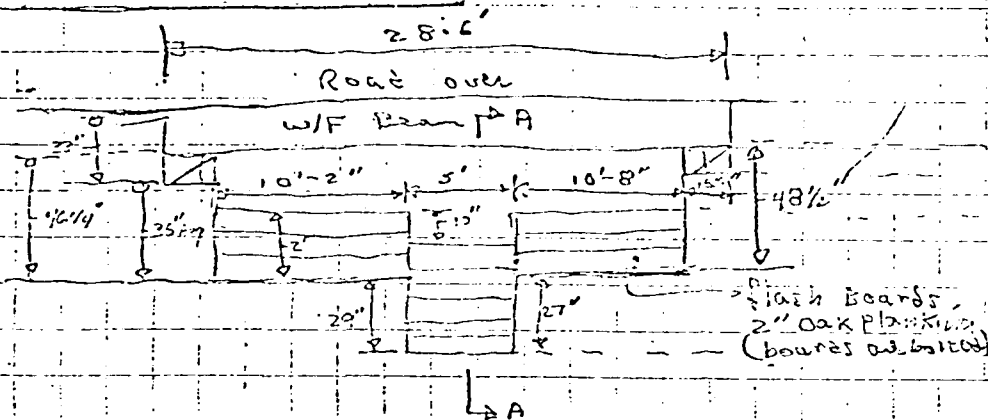 28'6"
Road over
W/F Beam A
22"
10'-2" 5' 10'-8"
48½"
46¼"
35"
12"
2'
20" 27"
Flash Boards
2" Oak Planking
(boards are bolted)
A